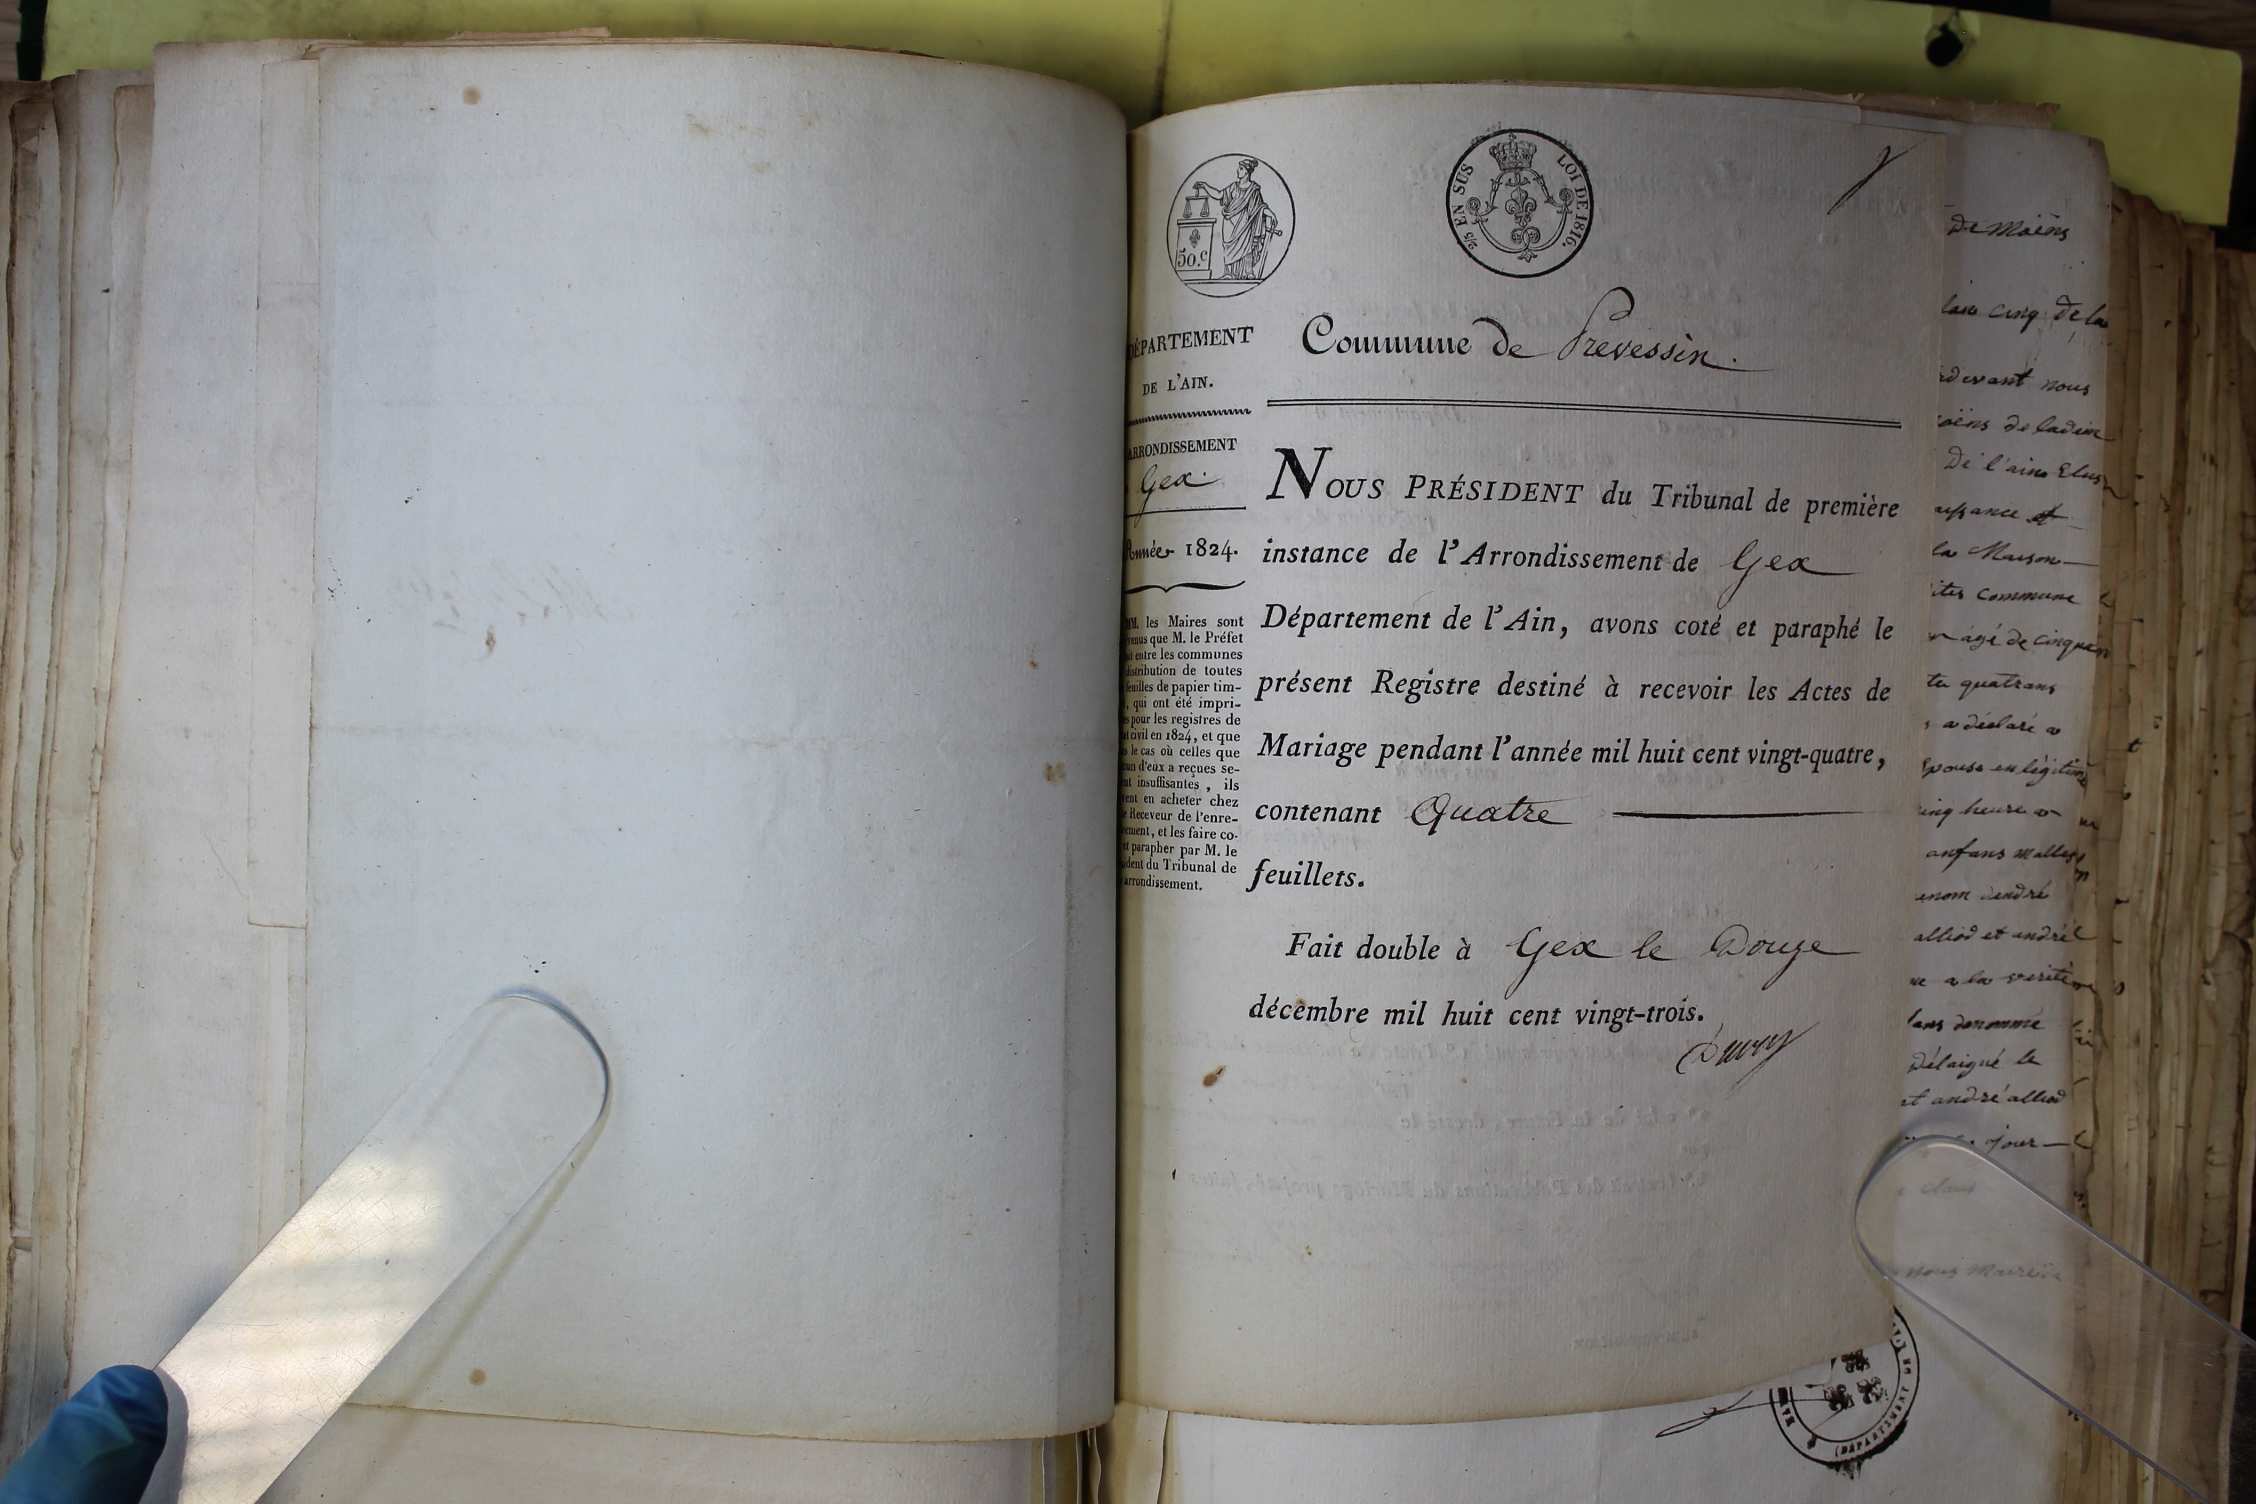 50.c
2/5 EN SUS LOI DE 1816.
DÉPARTEMENT
DE L'AIN.
ARRONDISSEMENT
Gex.
Année 1824.
MM. les Maires sont
venus que M. le Préfet
entre les communes
distribution de toutes
feuilles de papier tim-
, qui ont été impri-
pour les registres de
civil en 1824, et que
le cas où celles que
d'eux a reçues se-
insuffisantes, ils
en acheter chez
Receveur de l'enre-
, et les faire co-
et parapher par M. le
du Tribunal de
arrondissement.
Commune de Prevessin.
NOUS PRÉSIDENT du Tribunal de première
instance de l'Arrondissement de Gex
Département de l'Ain, avons coté et paraphé le
présent Registre destiné à recevoir les Actes de
Mariage pendant l'année mil huit cent vingt-quatre,
contenant Quatre
feuillets.
Fait double à Gex le Douze
décembre mil huit cent vingt-trois.
De Moëns
cinq de la
nous
De l'ain Elus
la Maison
commune
agé de cinquan
quatrans
a déclaré a
en légitime
heure
anfans
andré
et andré
a la verité
denomme
Délaigué le
et andré alliod
jour
nous Maire